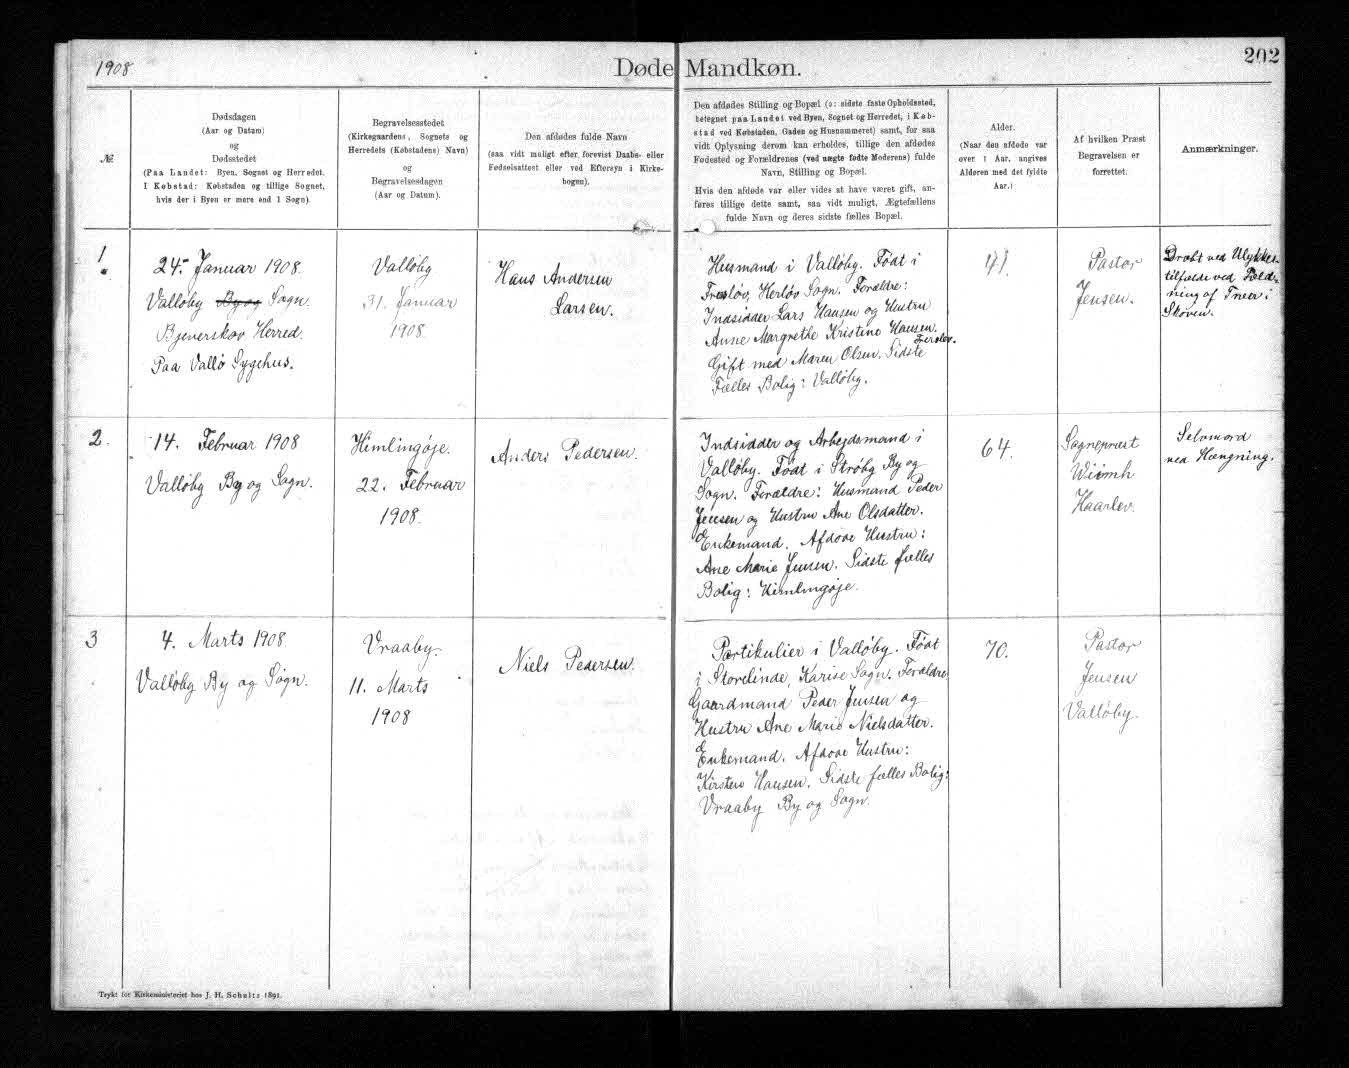 1908
Døde Mandkøn.
202
№
Dødsdagen
(Aar og Datum)
og
Dødsstedet
(Paa Landet: Byen, Sognet og Herredet.
I Købstad: Købstaden og tillige Sognet,
hvis der i Byen er mere end 1 Sogn).
Begravelsesstedet
(Kirkegaardens, Sognets og
Herredets (Købstadens) Navn)
og
Begravelsesdagen
(Aar og Datum).
Den afdødes fulde Navn
(saa vidt muligt efter forevist Daabs- eller
Fødselsattest eller ved Eftersyn i Kirke-
bogen).
Den afdødes Stilling og Bopæl (ɔ: sidste faste Opholdssted,
betegnet paa Landet ved Byen, Sognet og Herredet, i Køb-
stad ved Købstaden, Gaden og Husnummeret) samt, for saa
vidt Oplysning derom kan erholdes, tillige den afdødes
Fødested og Forældrenes (ved uægte fødte Moderens) fulde
Navn, Stilling og Bopæl.
Hvis den afdøde var eller vides at have været gift, an-
føres tillige dette samt, saa vidt muligt, Ægtefællens
fulde Navn og deres sidste fælles Bopæl.
Alder.
(Naar den afdøde var
over 1 Aar, angives
Alderen med det fyldte
Aar.)
Af hvilken Præst
Begravelsen er
forrettet.
Anmærkninger.
1
24. Januar 1908.
Valløby By og Sogn.
Bjeverskov Herred.
Paa Vallø Sygehus.
Valløby
31. Januar
1908.
Hans Andersen
Larsen.
Husmand i Valløby. Født i
Herløv Sogn. Forældre:
Indsidder Lars Hansen og Hustru
Anne Margrethe Kristine Hansen.
Gift med Maren Olsen. Sidste
Fælles Bolig: Valløby.
41.
Pastor
Jensen.
Dræbt ved Ulykkes-
tilfælde ved Fæld-
ning af Træer i
Skoven.
2.
14. Februar 1908
Valløby By og Sogn.
Himlingøje.
22. Februar
1908.
Anders Pedersen.
Indsidder og Arbejdsmand i
Valløby. Født i Strøby By og
Sogn. Forældre: Husmand Peder
Jensen og Hustru Ane Olsdatter.
Enkemand. Afdøde Hustru:
Ane Marie Jensen. Sidste fælles
Bolig: Himlingøje.
64.
Sognepræst
Haarlev.
Selvmord
ved Hængning.
3
4. Marts 1908
Valløby By og Sogn.
Vraaby.
11. Marts
1908
Niels Pedersen.
Partikulier i Valløby. Født
i Storelinde, Karise Sogn. Forældre
Gaardmand Peder Jensen og
Hustru Ane Marie Nielsdatter.
Enkemand. Afdøde Hustru:
Kirsten Hansen. Sidste fælles Bolig:
Vraaby By og Sogn.
70.
Pastor
Jensen
Valløby.
Trykt for Kirkeministeriet hos J. H. Schultz 1891.